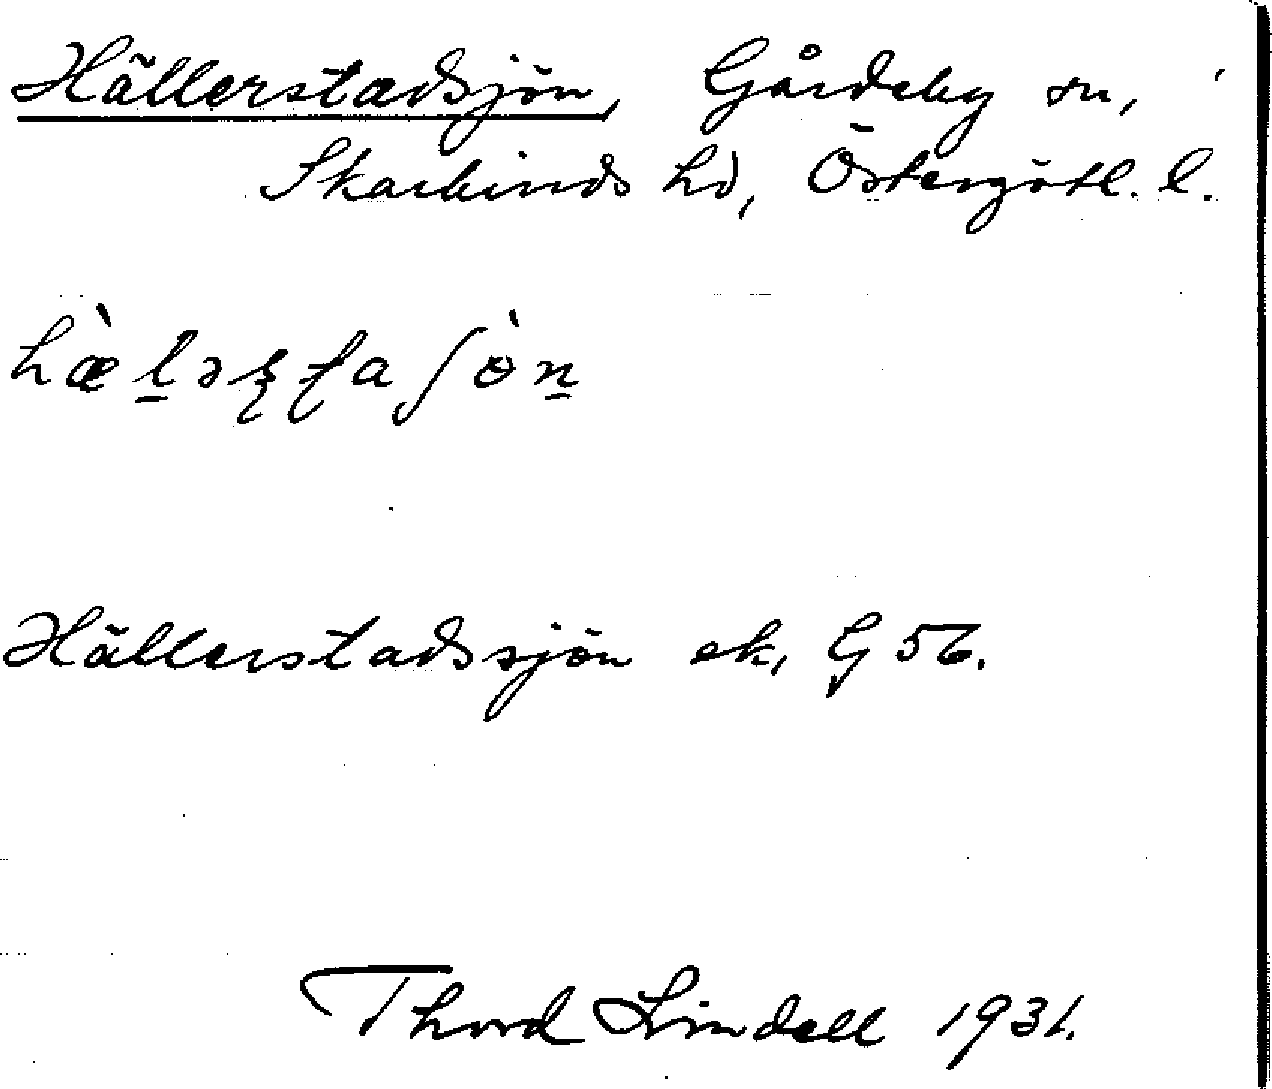 Hällerstadsjön, Gårdeby sn,
Skärkinds hd, Östergötl. l.
hæ̀l̲əʂʈaʃὸn̲
Hällerstadssjön ek, G 56.
Thord Lindell 1931.